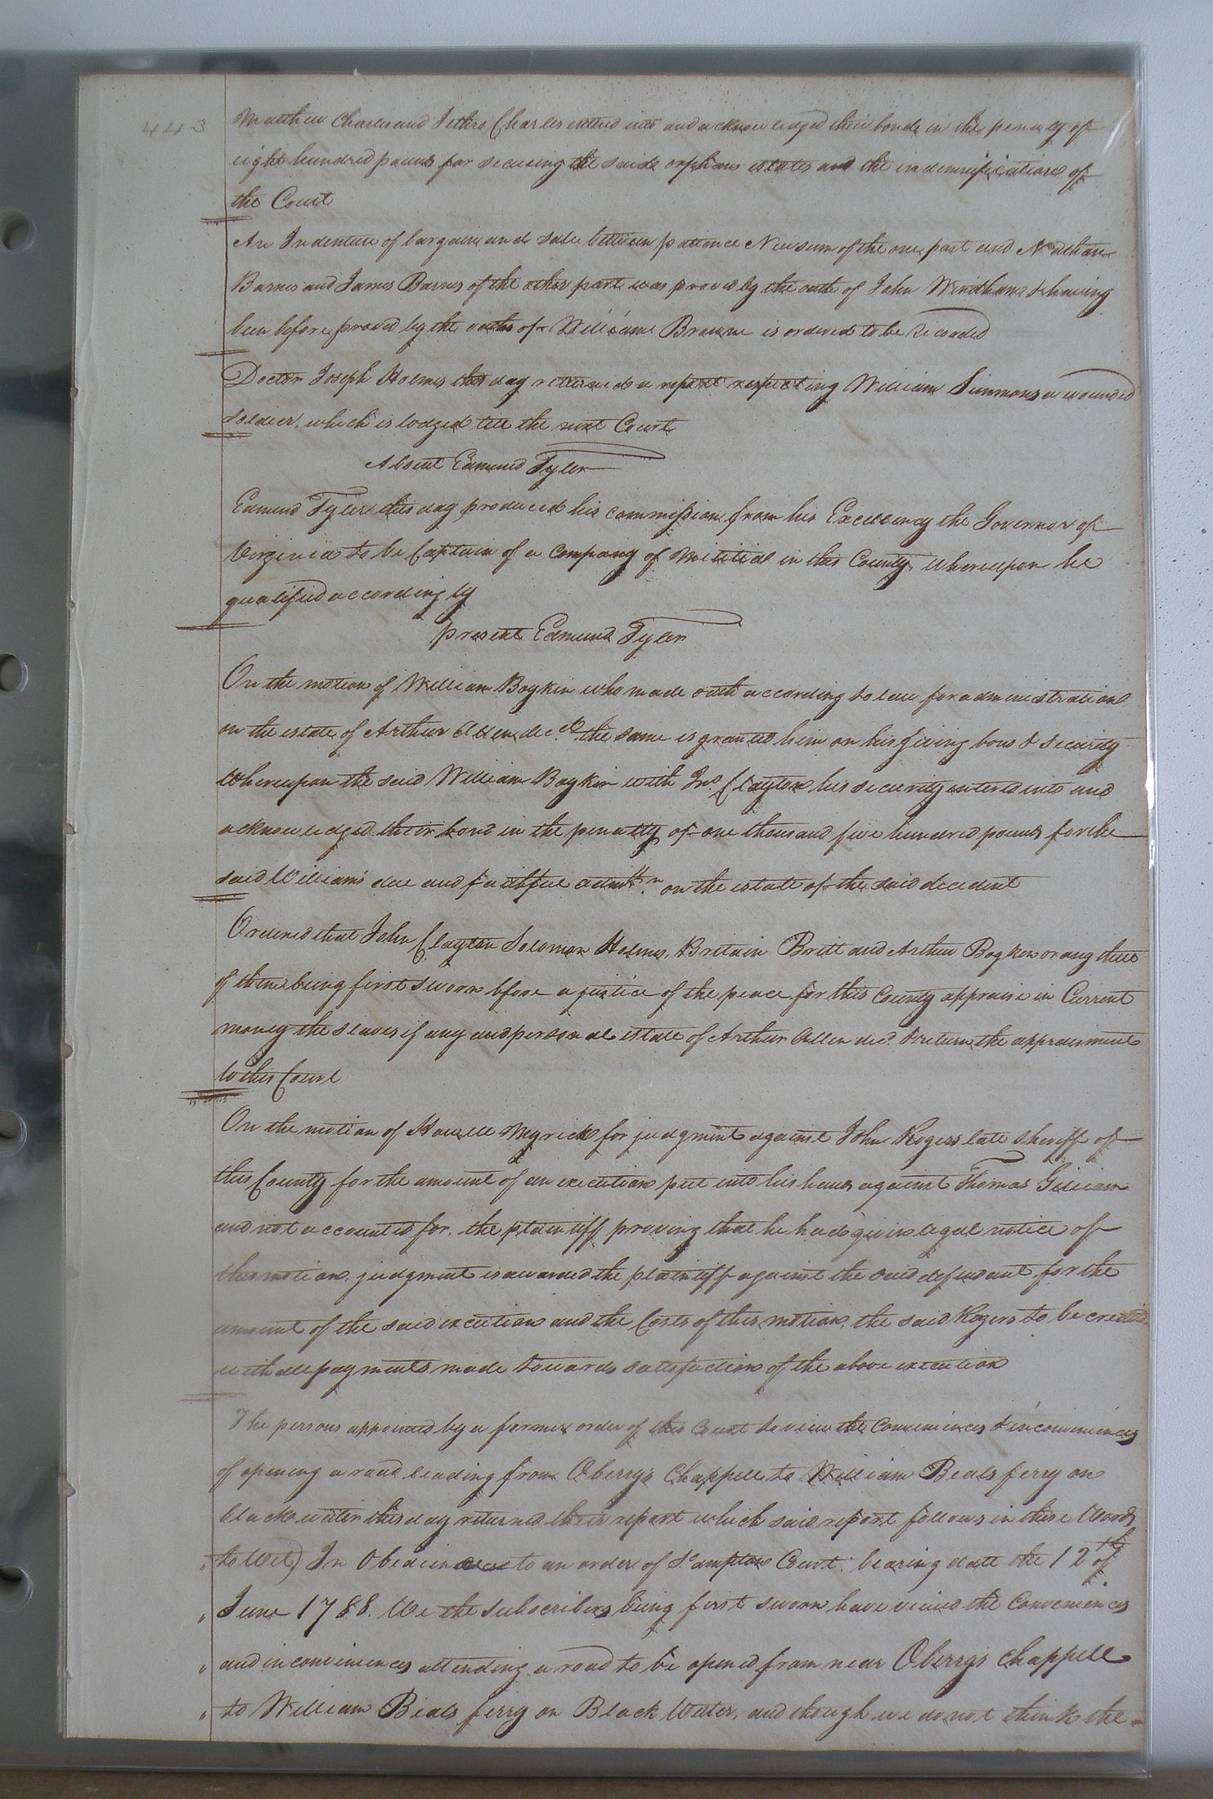 443
Matthew Charles and Jethro Charles entred into and acknowledged their bonds in the penalty of
eight hundred pounds for secureing the said orphans estates and the indemnification of
the Court
An Indenture of bargain and sale between patience Newsum of the one part and Nathan
Barnes and James Barnes of the other part was proved by the oath of John Windham & having
been before proved by the oaths of William Browne is ordered to be recorded
Doctor Joseph Holmes this day returned a report respecting William Simmons a wounded
soldier, which is lodged till the next Court
Absent Edmund Tyler
Edmund Tyler this day produced his commission from his Excellency the Governor of
Virginia to be Captain of a company of Militia in this County, whereupon he
qualified accordingly
present Edmund Tyler
On the motion of William Boykin who made oath according to law for administration
on the estate of Arthur Allen decd. the same is granted him on his giving bond & security
Whereupon the said William Boykin with Jno. Clayton his security entered into and
acknowledged their bond in the penalty of one thousand five hundred pounds for the
said William's due and faithful admtn. on the estate of the said decedent
Ordered that John Clayton Solomon Holmes, Britain Britt and Arthur Boykin or any three
of them being first sworn bfore a justice of the peace for this County appraise in Current
money the slaves if any and personal estate of Arthur Allen decd. & return the appraisment
to this Court
On the motion of Howell Myrick for judgment against John Rogers late Sheriff of
this County for the amount of an execution put into his hands against Thomas Gilliam
and not accounted for, the plaintiff proving that he had given legal notice of
this motion, judgment is awarded the plaintiff against the said defendant for the
amount of the said execution and the Costs of this motion, the said Rogers to be credited
with all payments made towards satisfaction of the above execution
The persons appointed by a former order of this Court to view the Conveniences & inconveniences
of opening a road leading from Oberry's Chappell to William Beals ferry on
black water this day returned their report which said report follows in these Words
to Wit) In Obedience to an order of So.ampton Court, bearing date the 12th of
" June 1788. We the subscribers being first sworn have viewed the Conveniences
" and inconveniences attending a road to be opened from near Oberry's Chappell
" to William Beals ferry on Black Water, and though we do not think the